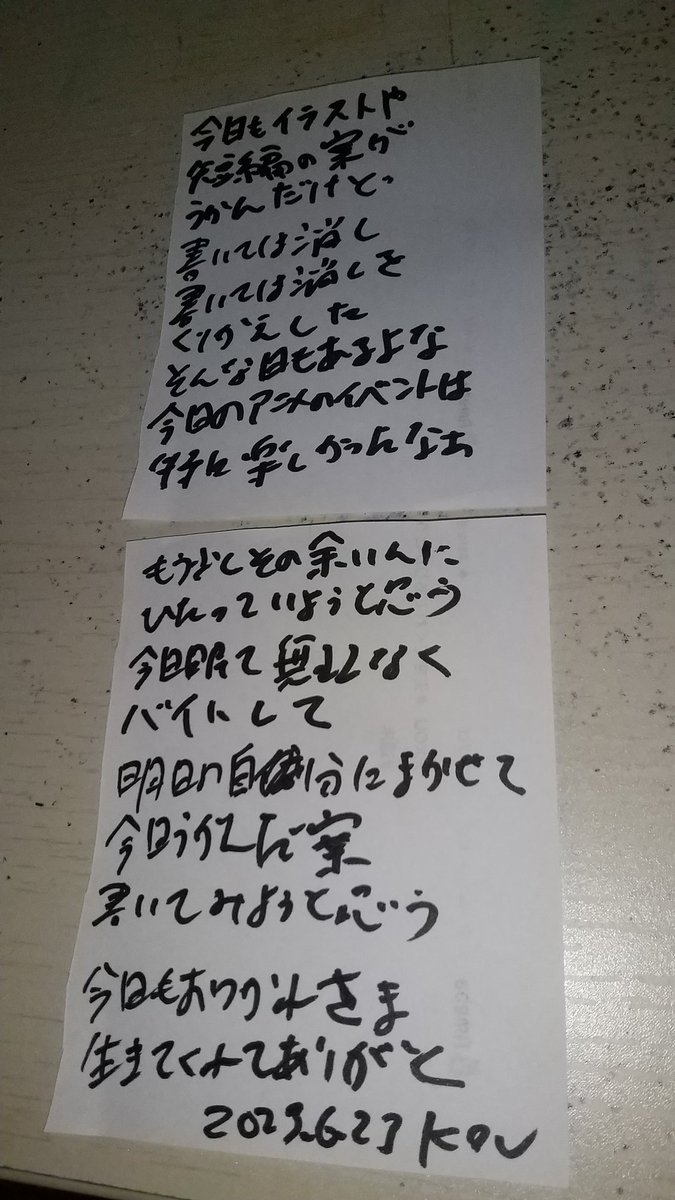 今日もイラストや
短編の案が
うかんだけど、
書いては消し
書いては消しを
くりかえした
そんな日もあるよな
今日のアニメのイベントは
楽しかったなぁ
もう少しその余いんに
ひたっていようと思う
今日は無理なく
バイにして
明日の自分にまかせて
今日うかんだ案
書いてみようと思う
今日もおつかれさま
生きてくれてありがと
6.23 Kou